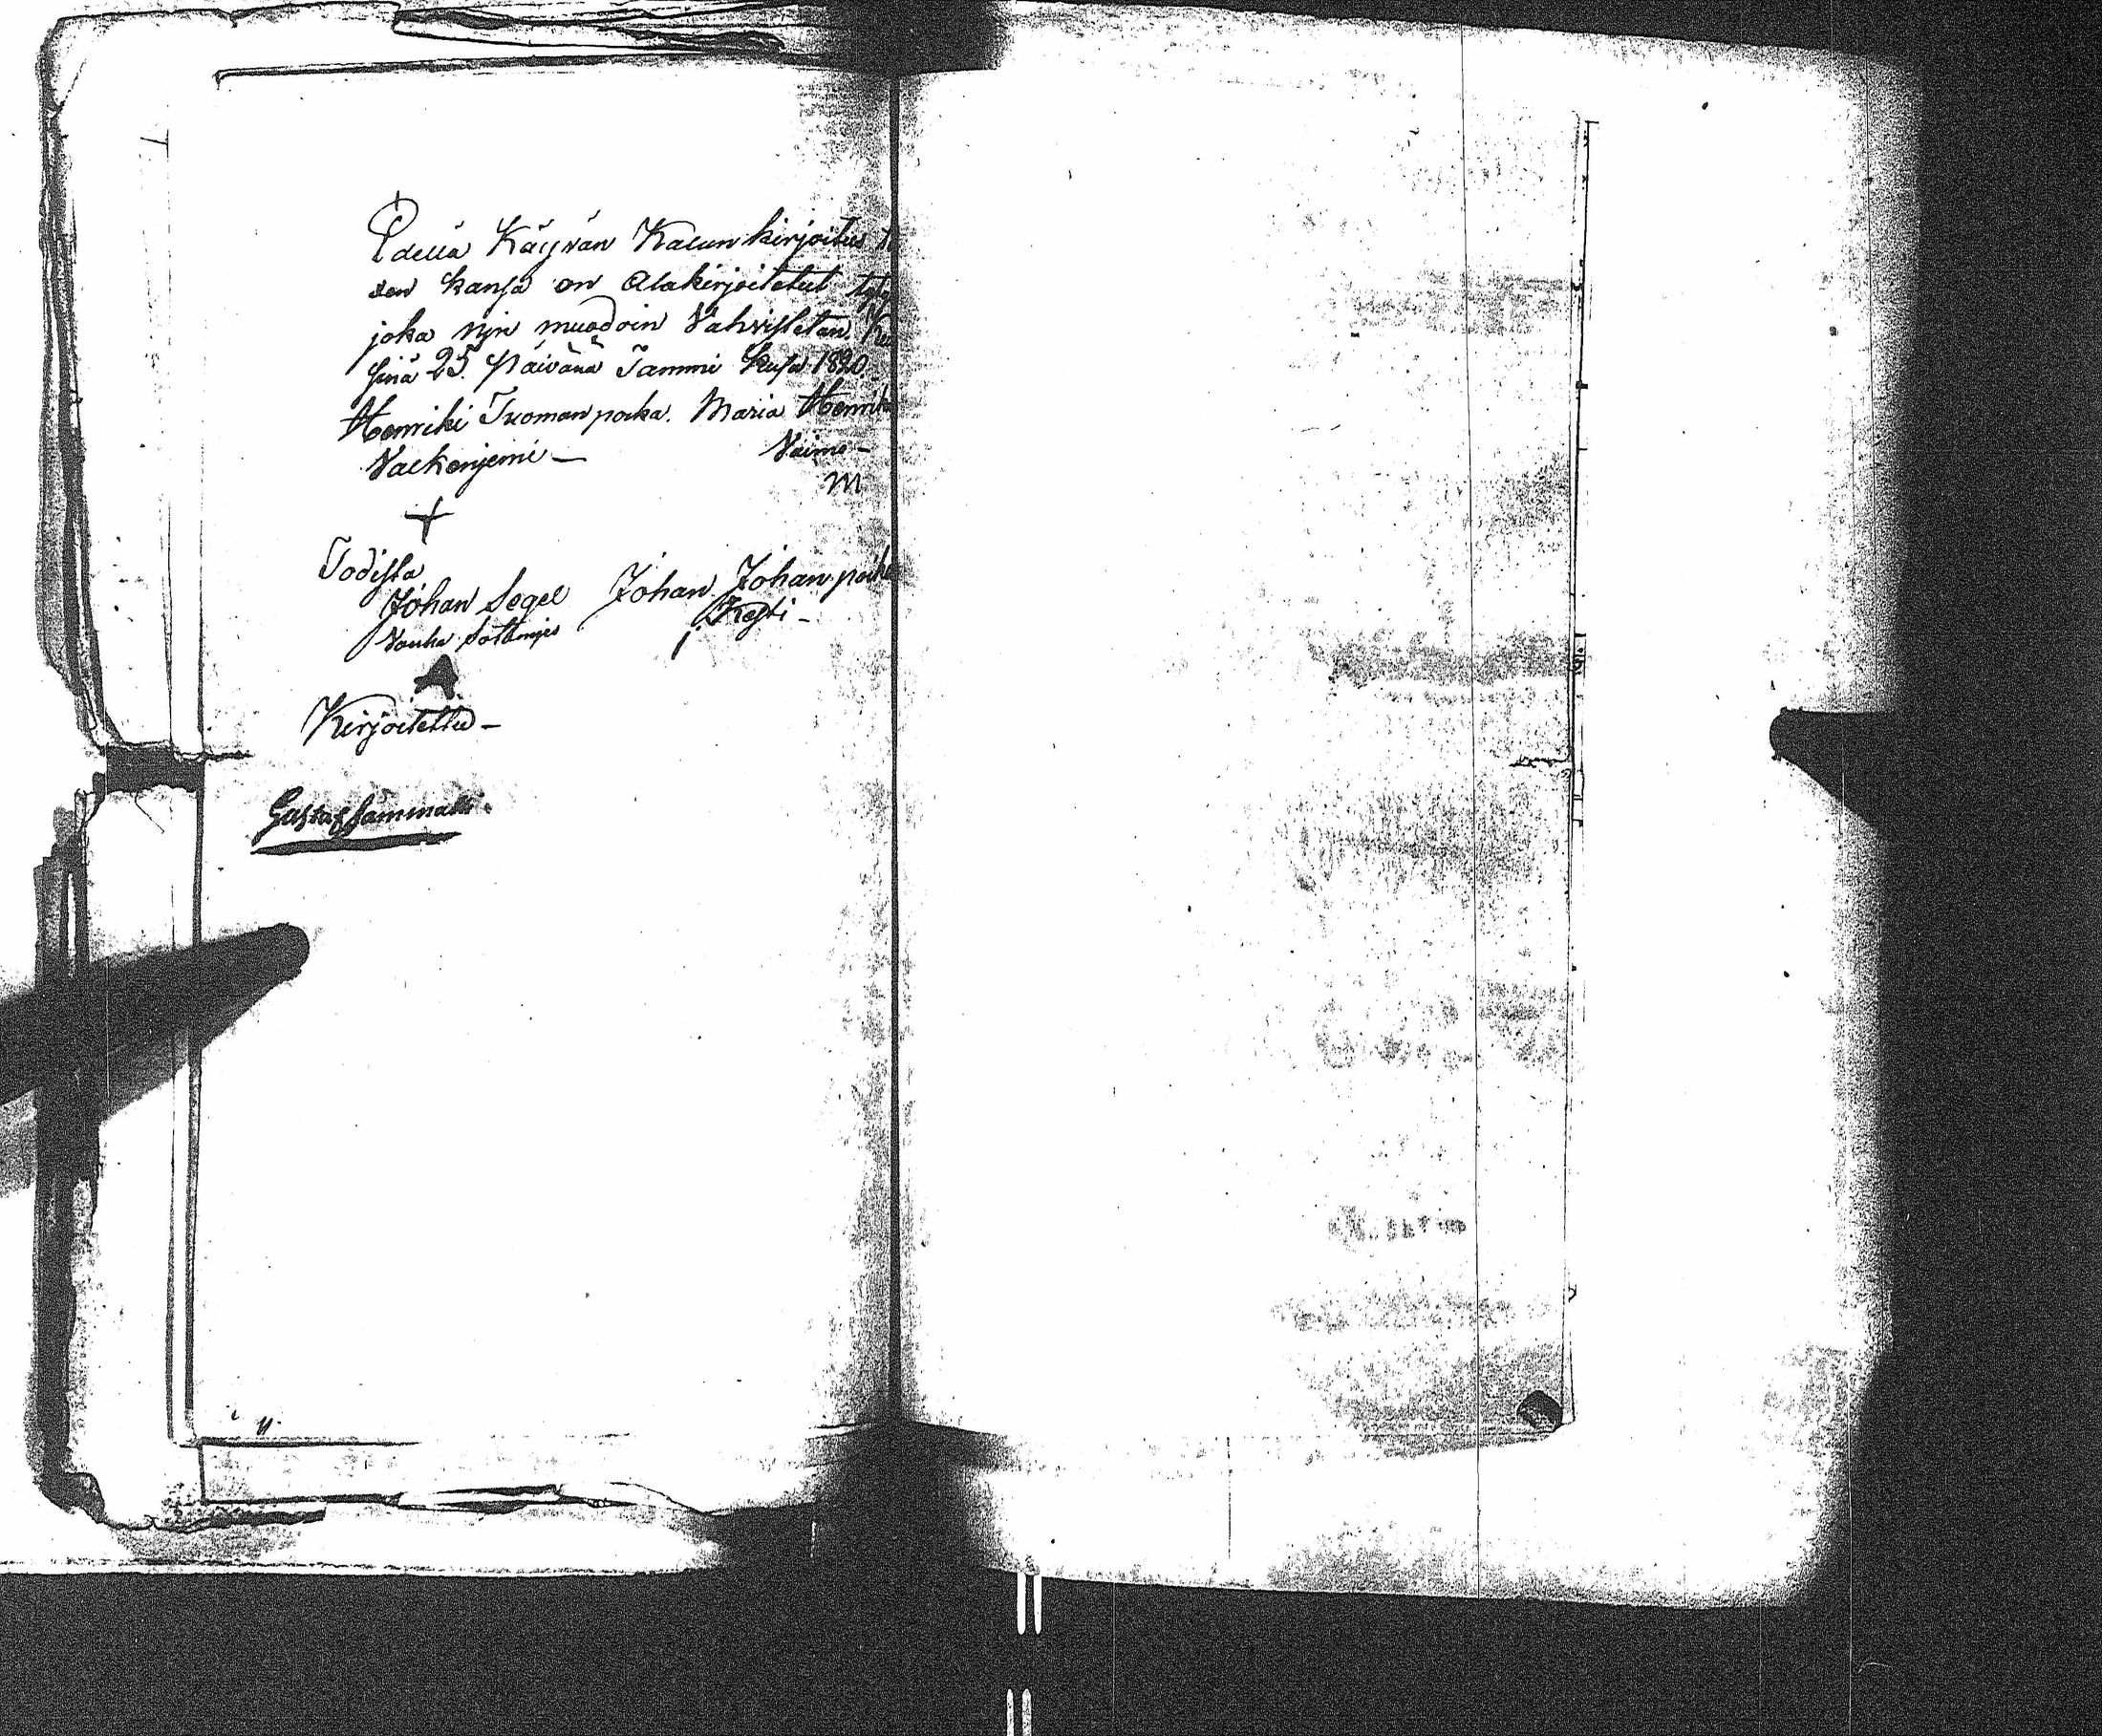 Edellä Käÿvän Kalun kirjoitus
den kansa on Allakirjoitetut
joka nijn muodoin Vahvistetan.
sinä 25. Päivänä Tammi Kusa 1820.
Henriki Tuoman poika. Maria Henrik
Valkenjemi — Vaimo —
m
+
Todista
Johan Segel Johan Johan poika
Vanha Sotamjes Kesti —
A
Kirjoitettu —
Gustaf Sammatti.